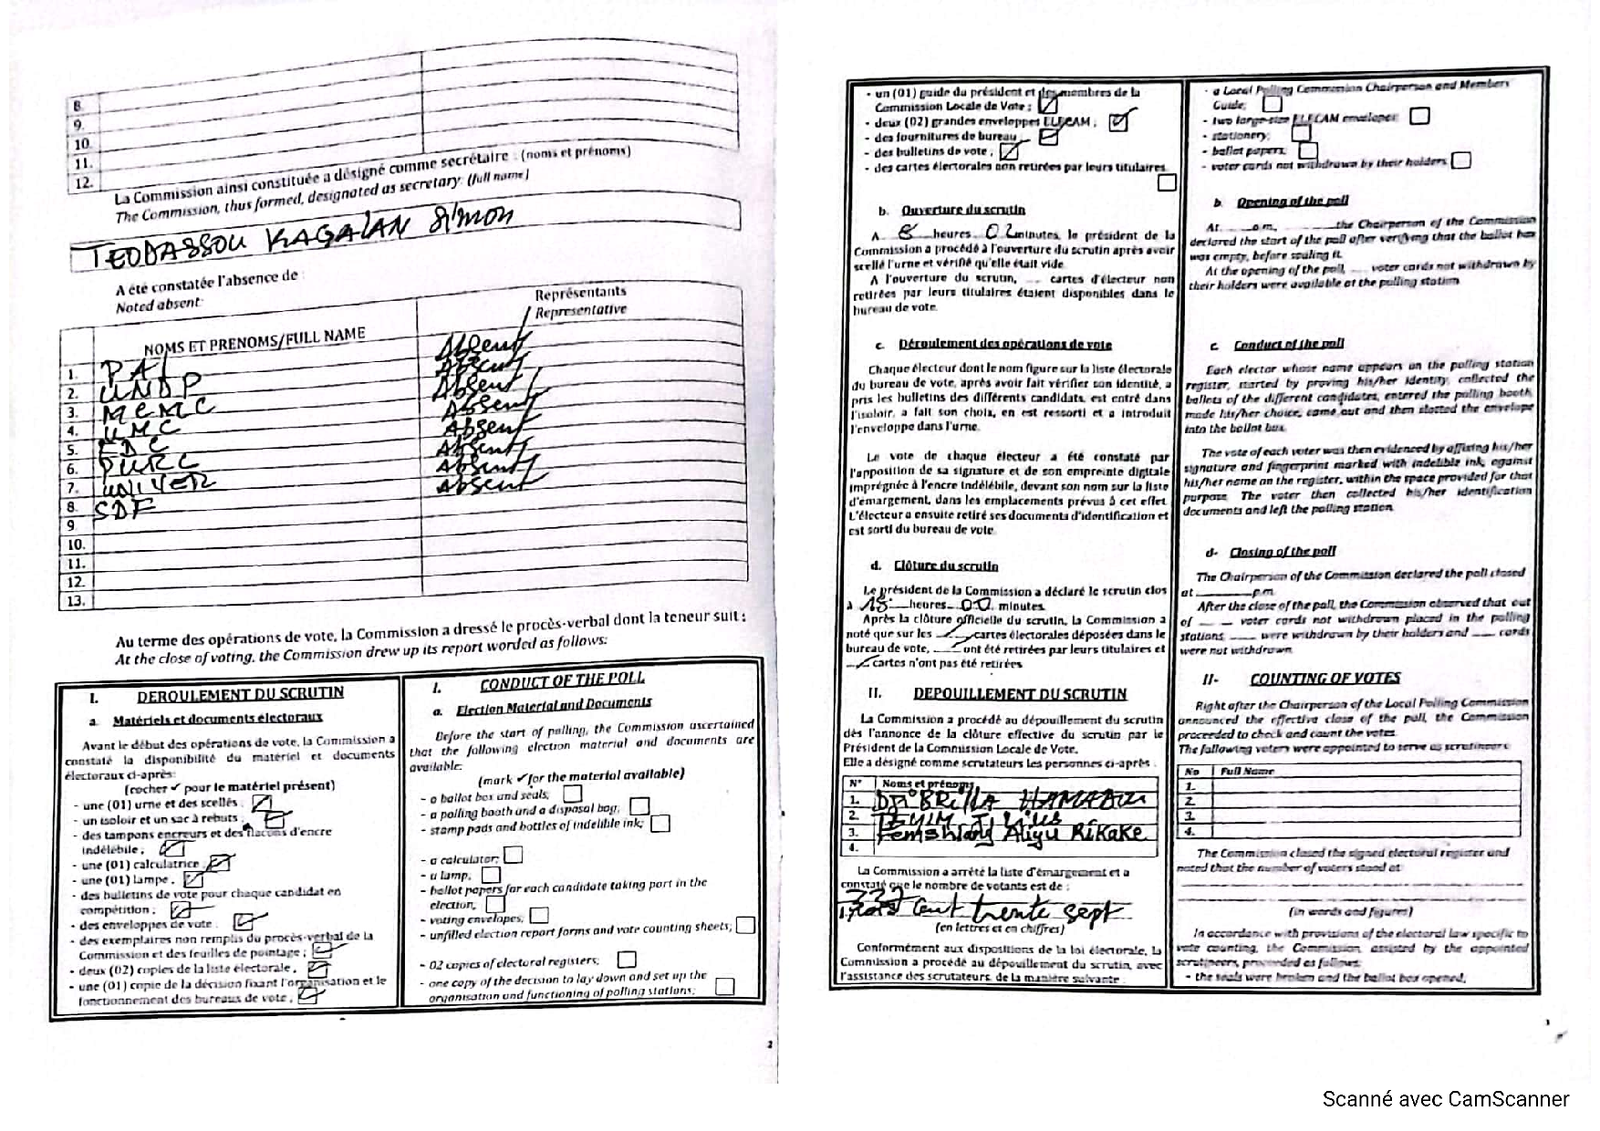 8.
9.
10.
11.
12.
La Commission ainsi constituée a désigné comme secrétaire : (noms et prénoms)
The Commission, thus formed, designated as secretary: (full name)
TEODASSOU KAGALAN Simon
A été constatée l'absence de :
Noted absent:
NOMS ET PRENOMS/FULL NAME
Représentants
Representative
1. PAI Absent
2. UNDP Absent
3. MCNC Absent
4. UMC Absent
5. FDC Absent
6. PURC Absent
7. UNIVERS Absent
8. SDF Absent
9.
10.
11.
12.
13.
Au terme des opérations de vote, la Commission a dressé le procès-verbal dont la teneur suit :
At the close of voting, the Commission drew up its report worded as follows:
I. DEROULEMENT DU SCRUTIN
a. Matériels et documents électoraux
Avant le début des opérations de vote, la Commission a
constaté la disponibilité du matériel et documents
électoraux ci-après:
(cocher ✓ pour le matériel présent)
- une (01) urne et des scellés :
- un isoloir et un sac à rebuts ;
- des tampons encreurs et des flacons d'encre
indélébile ;
- une (01) calculatrice
- une (01) lampe .
- des bulletins de vote pour chaque candidat en
compétition ;
- des enveloppes de vote .
- des exemplaires non remplis du procès-verbal de la
Commission et des feuilles de pointage ;
- deux (02) copies de la liste électorale .
- une (01) copie de la décision fixant l'organisation et le
fonctionnement des bureaux de vote ;
I. CONDUCT OF THE POLL
a. Election Material and Documents
Before the start of polling, the Commission ascertained
that the following election material and documents are
available:
(mark ✓ for the material available)
- a ballot box and seals;
- a polling booth and a disposal bag;
- stamp pads and bottles of indelible ink;
- a calculator;
- a lamp;
- ballot papers for each candidate taking part in the
election;
- voting envelopes;
- unfilled election report forms and vote counting sheets;
- 02 copies of electoral registers;
- one copy of the decision to lay down and set up the
organisation and functioning of polling stations;
2
- un (01) guide du président et des membres de la
Commission Locale de Vote ;
- deux (02) grandes enveloppes ELECAM ;
- des fournitures de bureau
- des bulletins de vote ;
- des cartes électorales non retirées par leurs titulaires.
b. Ouverture du scrutin
A 8 heures 02 minutes, le président de la
Commission a procédé à l'ouverture du scrutin après avoir
scellé l'urne et vérifié qu'elle était vide.
A l'ouverture du scrutin, ... cartes d'électeur non
retirées par leurs titulaires étaient disponibles dans le
bureau de vote.
c. Déroulement des opérations de vote
Chaque électeur dont le nom figure sur la liste électorale
du bureau de vote, après avoir fait vérifier son identité, a
pris les bulletins des différents candidats, est entré dans
l'isoloir, a fait son choix, en est ressorti et a introduit
l'enveloppe dans l'urne.
Le vote de chaque électeur a été constaté par
l'apposition de sa signature et de son empreinte digitale
imprégnée à l'encre indélébile, devant son nom sur la liste
d'émargement, dans les emplacements prévus à cet effet.
L'électeur a ensuite retiré ses documents d'identification et
est sorti du bureau de vote.
d. Clôture du scrutin
Le président de la Commission a déclaré le scrutin clos
à 18 heures 00 minutes.
Après la clôture officielle du scrutin, la Commission a
noté que sur les / cartes électorales déposées dans le
bureau de vote, / ont été retirées par leurs titulaires et
/ cartes n'ont pas été retirées
II. DEPOUILLEMENT DU SCRUTIN
La Commission a procédé au dépouillement du scrutin
dès l'annonce de la clôture effective du scrutin par le
Président de la Commission Locale de Vote.
Elle a désigné comme scrutateurs les personnes ci-après .
N° Noms et prénoms
1. DJIBRILLA HAMADOU
2.
3. Femshiang Aliyu Rikake
4.
La Commission a arrêté la liste d'émargement et a
constaté que le nombre de votants est de :
337
Trois cent trente sept
(en lettres et en chiffres)
Conformément aux dispositions de la loi électorale, la
Commission a procédé au dépouillement du scrutin, avec
l'assistance des scrutateurs, de la manière suivante
- a Local Polling Commission Chairperson and Members
Guide;
- two large-size ELECAM envelopes;
- stationery;
- ballot papers;
- voter cards not withdrawn by their holders
b. Opening of the poll
At ______ a.m, ______ the Chairperson of the Commission
declared the start of the poll after verifying that the ballot box
was empty, before sealing it.
At the opening of the poll, ... voter cards not withdrawn by
their holders were available at the polling station
c. Conduct of the poll
Each elector whose name appears on the polling station
register, started by proving his/her identity, collected the
ballots of the different candidates, entered the polling booth,
made his/her choice, came out and then slotted the envelope
into the ballot box.
The vote of each voter was then evidenced by affixing his/her
signature and fingerprint marked with indelible ink, against
his/her name on the register, within the space provided for that
purpose. The voter then collected his/her identification
documents and left the polling station.
d- Closing of the poll
The Chairperson of the Commission declared the poll closed
at ________ p.m.
After the close of the poll, the Commission observed that out
of ____ voter cards not withdrawn placed in the polling
stations, ____ were withdrawn by their holders and ____ cards
were not withdrawn.
II- COUNTING OF VOTES
Right after the Chairperson of the Local Polling Commission
announced the effective close of the poll, the Commission
proceeded to check and count the votes.
The following voters were appointed to serve as scrutineers:
No Full Name
1.
2.
3.
4.
The Commission closed the signed electoral register and
noted that the number of voters stood at:
(in words and figures)
In accordance with provisions of the electoral law specific to
vote counting, the Commission, assisted by the appointed
scrutineers, proceeded as follows:
- the seals were broken and the ballot box opened;
3
Scanné avec CamScanner